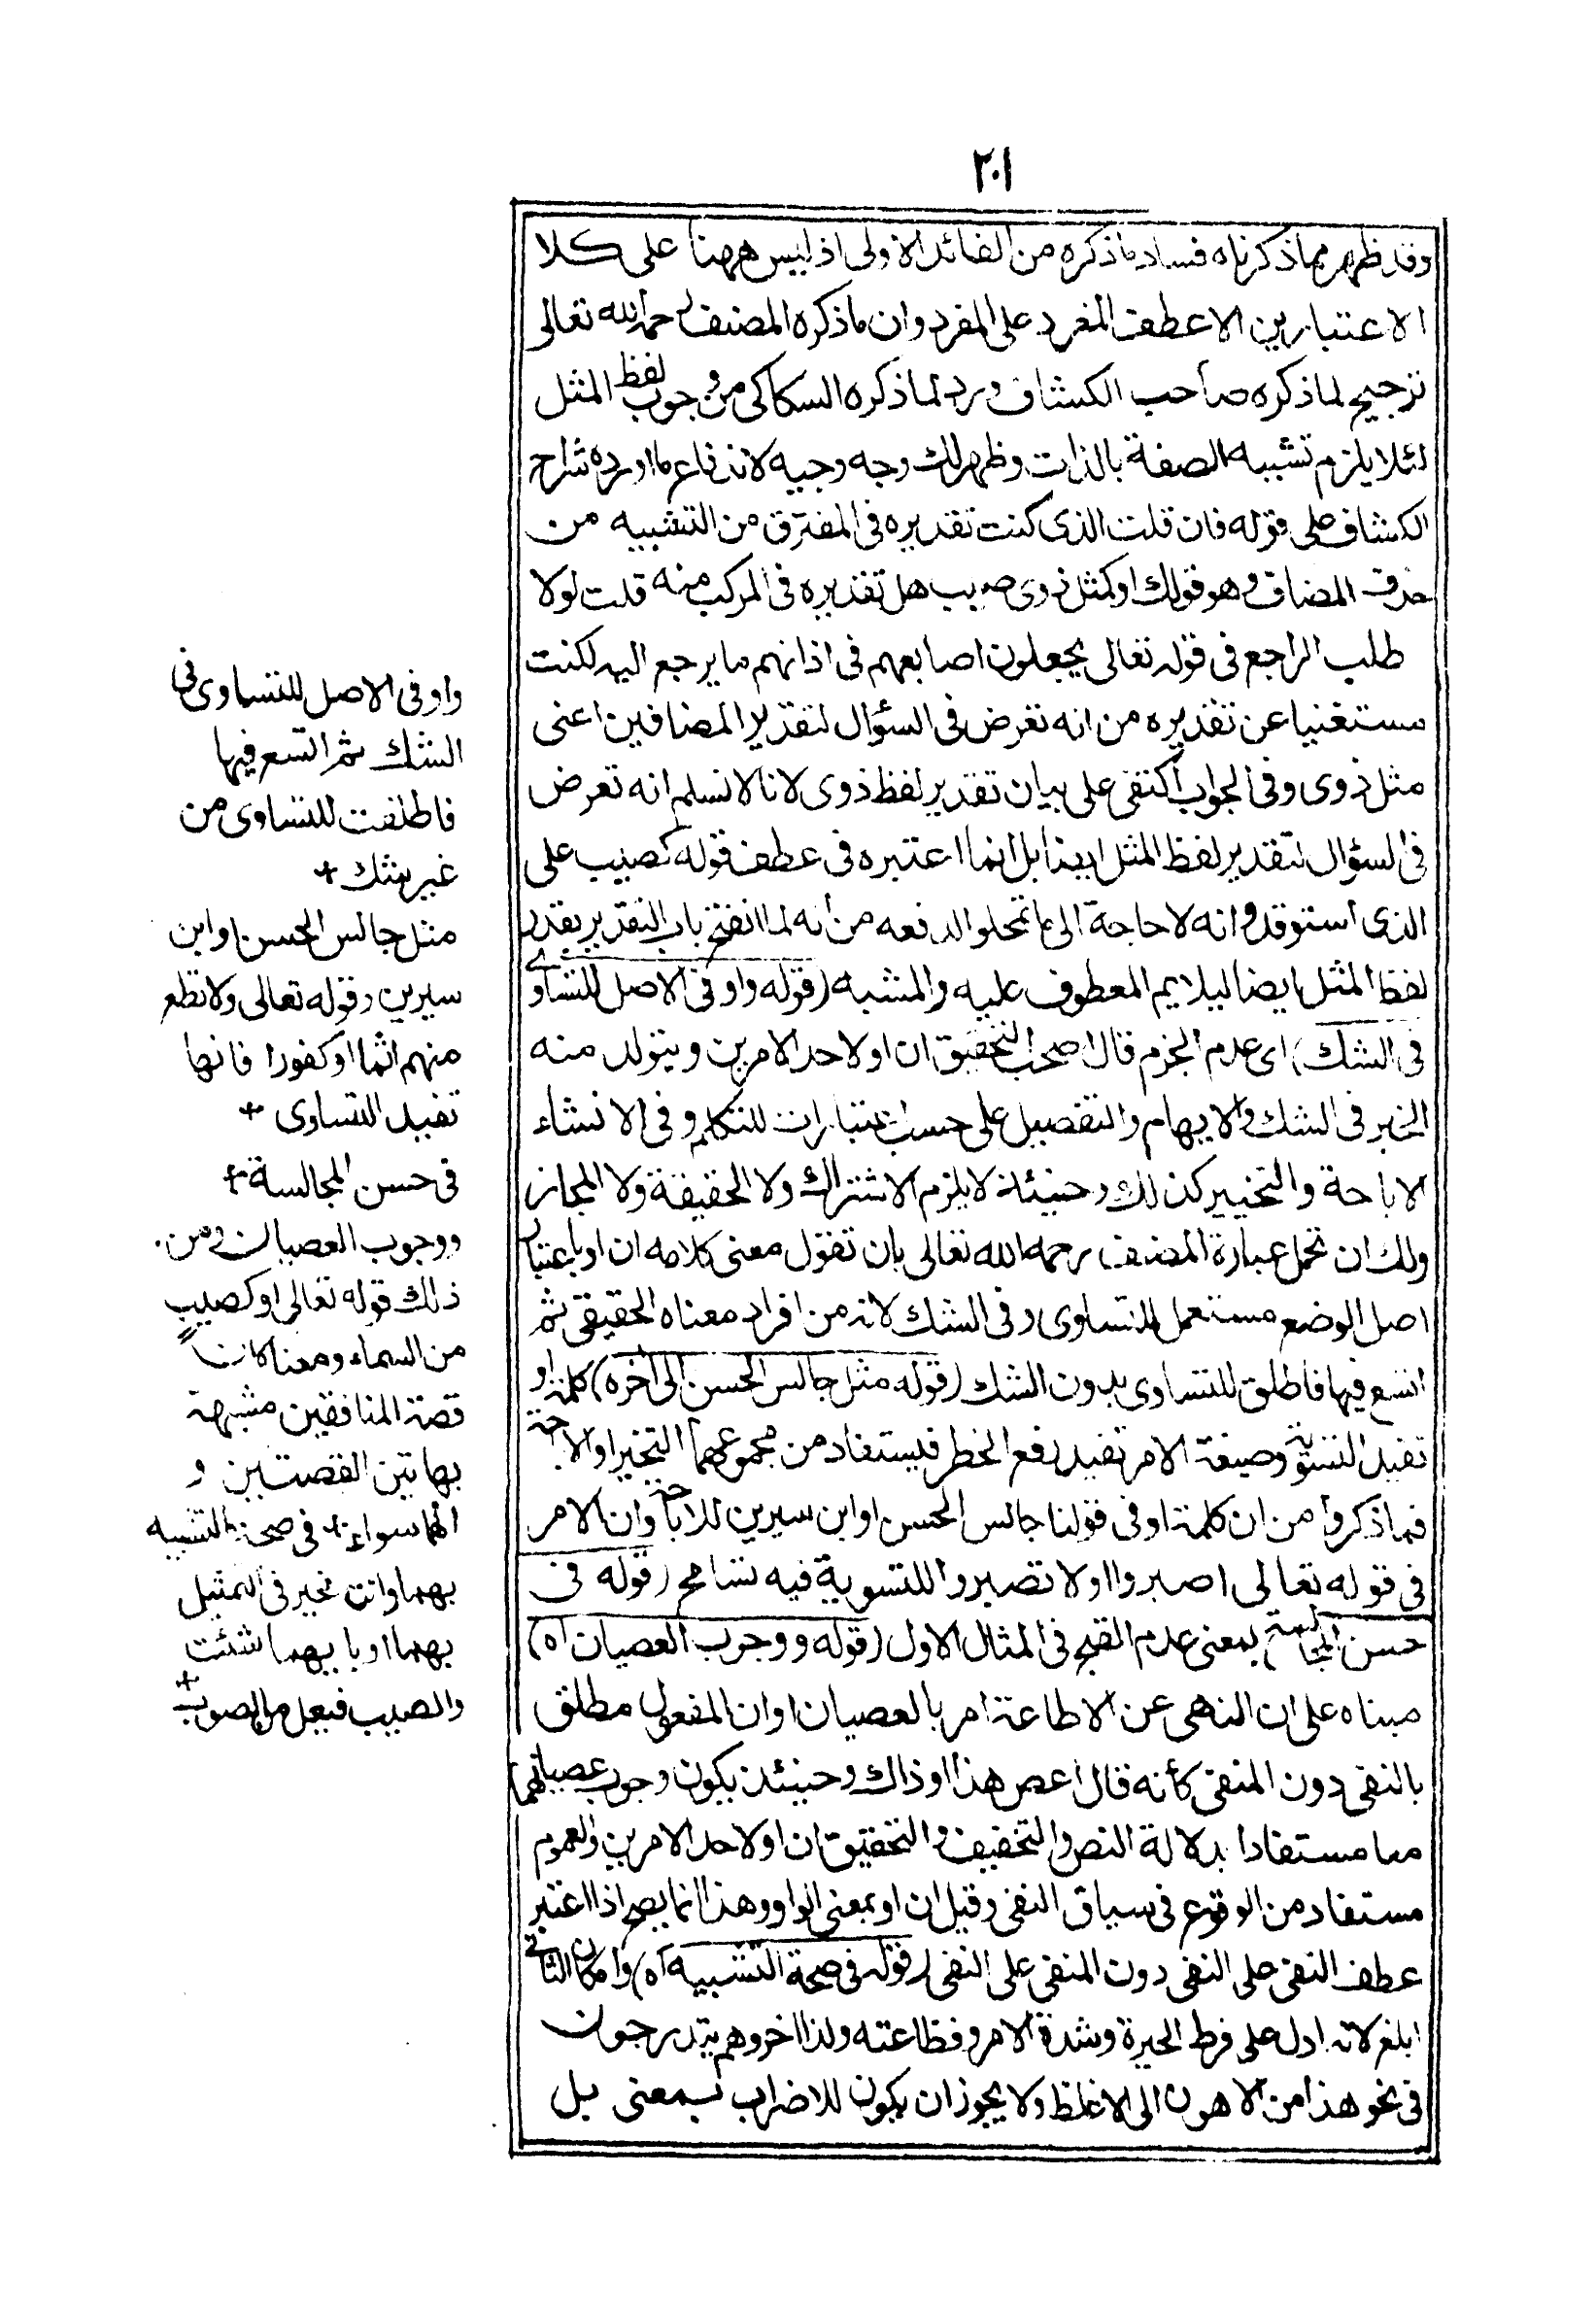 ٢٠١
وقد ظهر مما ذكرناه فساد ما ذكره من الفائدة الاولى اذ ليس ههنا على كلا
الاعتبارين الا عطف المفرد على المفرد وان ما ذكره المصنف رحمه الله تعالى
ترجيح لما ذكره صاحب الكشاف ورد لما ذكره السكاكى من وجوب لفظ المثل
لئلا يلزم تشبيه الصفة بالذات وظهر لك وجه وجيه لاندفاع ما اورده شراح
الكشاف على قوله فان قلت الذى كنت تقديره فى المفترق من التشبيه من
حذف المضاف وهو قولك او كمثل ذوى صيب هل تقديره فى المركب منه قلت لولا
طلب الراجع فى قوله تعالى يجعلون اصابعهم فى اذانهم ما يرجع اليه لكنت
مستغنيا عن تقديره من انه تعرض فى السؤال لتقدير المضافين اعنى
مثل ذوى وفى الجواب اكتفى على بيان تقدير لفظ ذوى لانا لا نسلم انه تعرض
فى السؤال لتقدير لفظ المثل ايضا بل انما اعتبره فى عطف قوله كصيب على
الذى استوقد وانه لا حاجة الى ما تمحلوا لدفعه من انه لما انفتح باب التقدير يقدر
لفظ المثل ايضا ليلايم المعطوف عليه والمشبه (قوله واو فى الاصل للتساوى
فى الشك) اى عدم الجزم قال اصحب التحقيق ان او لاحد الامرين ويتولد منه
الخبر فى الشك والابهام والتفصيل على حسب اعتبارات للتكلم وفى الانشاء
الاباحة والتخيير كذلك وحينئذ لا يلزم الاشتراك ولا الحقيقة ولا المجاز
ولك ان تحمل عبارة المصنف رحمه الله تعالى بان تقول معنى كلامه ان او باعتبار
اصل الوضع مستعمل للتساوى وفى الشك لانه من افراد معناه الحقيقى ثم
اتسع فيها فاطلق للتساوى بدون الشك (قوله مثل جالس الحسن الى آخره) كلمة او
تفيد التسوية وصيغة الامر تفيد رفع الخطر فيستفاد من مجموعهما التخير او الاباحة
فما ذكروا من ان كلمة او فى قولنا جالس الحسن او ابن سيرين للاباحة وان الامر
فى قوله تعالى اصبروا او لا تصبروا للتسوية فيه تسامح (قوله فى
حسن المجالسة) بمعنى عدم القبح فى المثال الاول (قوله ووجوب العصيان اه)
مبناه على ان النهى عن الاطاعة امر بالعصيان او ان المفعول مطلق
بالنفى دون المنفى كأنه قال اعص هذا او ذاك وحينئذ يكون وجوب عصيانهما
معا مستفادا بدلالة النص والتخفيف والتحقيق ان او لاحد الامرين والعموم
مستفاد من الوقوع فى سياق النفى وقيل ان او بمعنى الواو وهذا انما يصح اذا اعتبر
عطف النفى على النفى دون المنفى على النفى (قوله فى صحة التشبيه اه) وان كان الثانى
ابلغ لانه ادل على فرط الحيرة وشدة الامر وفظاعته ولذا اخر وهم يتدرجون
فى نحو هذا من الاهون الى الاغلظ ولا يجوز ان يكون للاضراب بمعنى بل
واو فى الاصل للتساوى فى
الشك ثم اتسع فيها
فاطلقت للتساوى من
غير شك +
مثل جالس الحسن او ابن
سيرين وقوله تعالى ولا تطع
منهم اثما او كفورا فانها
تفيد التساوى +
فى حسن المجالسة +
ووجوب العصيان ومن
ذلك قوله تعالى او كصيب
من السماء ومعناه ان
قصة المنافقين مشبهة
بهاتين القصتين و
انهما سواء + فى صحة التشبيه
بهما وانت مخير فى التمثيل
بهما او بايهما شئت
والصيب فيعل من الصوب +